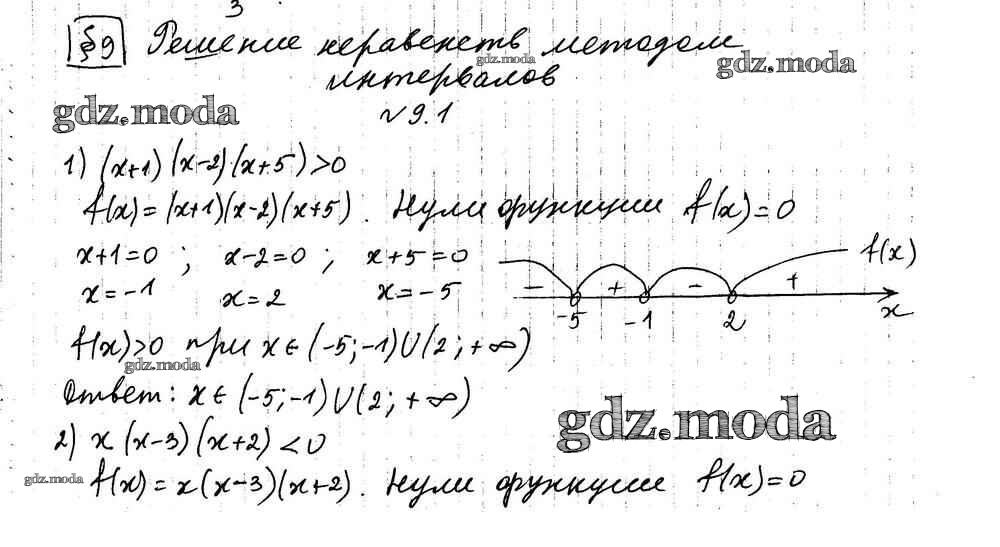 3
§9 Решение неравенств методом
gdz.moda
gdz.moda
интервалов
gdz.moda
№9.1
1) (x+1)(x-2)(x+5)>0
f(x)=(x+1)(x-2)(x+5). Нули функции f(x)=0
x+1=0 ; x-2=0 ; x+5=0
x=-1 x=2 x=-5
f(x)
- + - +
-5 -1 2 x
f(x)>0 при x∈(-5;-1)∪(2;+∞)
gdz.moda
Ответ: x∈(-5;-1)∪(2;+∞)
gdz.moda
2) x(x-3)(x+2)<0
gdz.moda
f(x)=x(x-3)(x+2). Нули функции f(x)=0